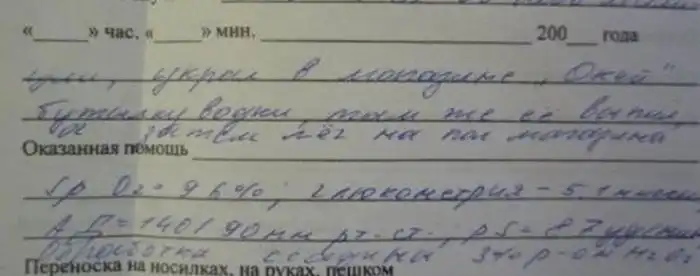 «____» час, «____» мин, ____ 200__ года
украл в магазине „Окей"
бутылку водки, там же её выпил,
а затем лёг на пол магазина
Оказанная помощь
Sp O₂ = 96%; глюкометрия - 5.1
АД = 140/90 мм рт. ст.; PS = 87
обработка ссадины 3% р-ом H₂O₂
Переноска на носилках, на руках, пешком